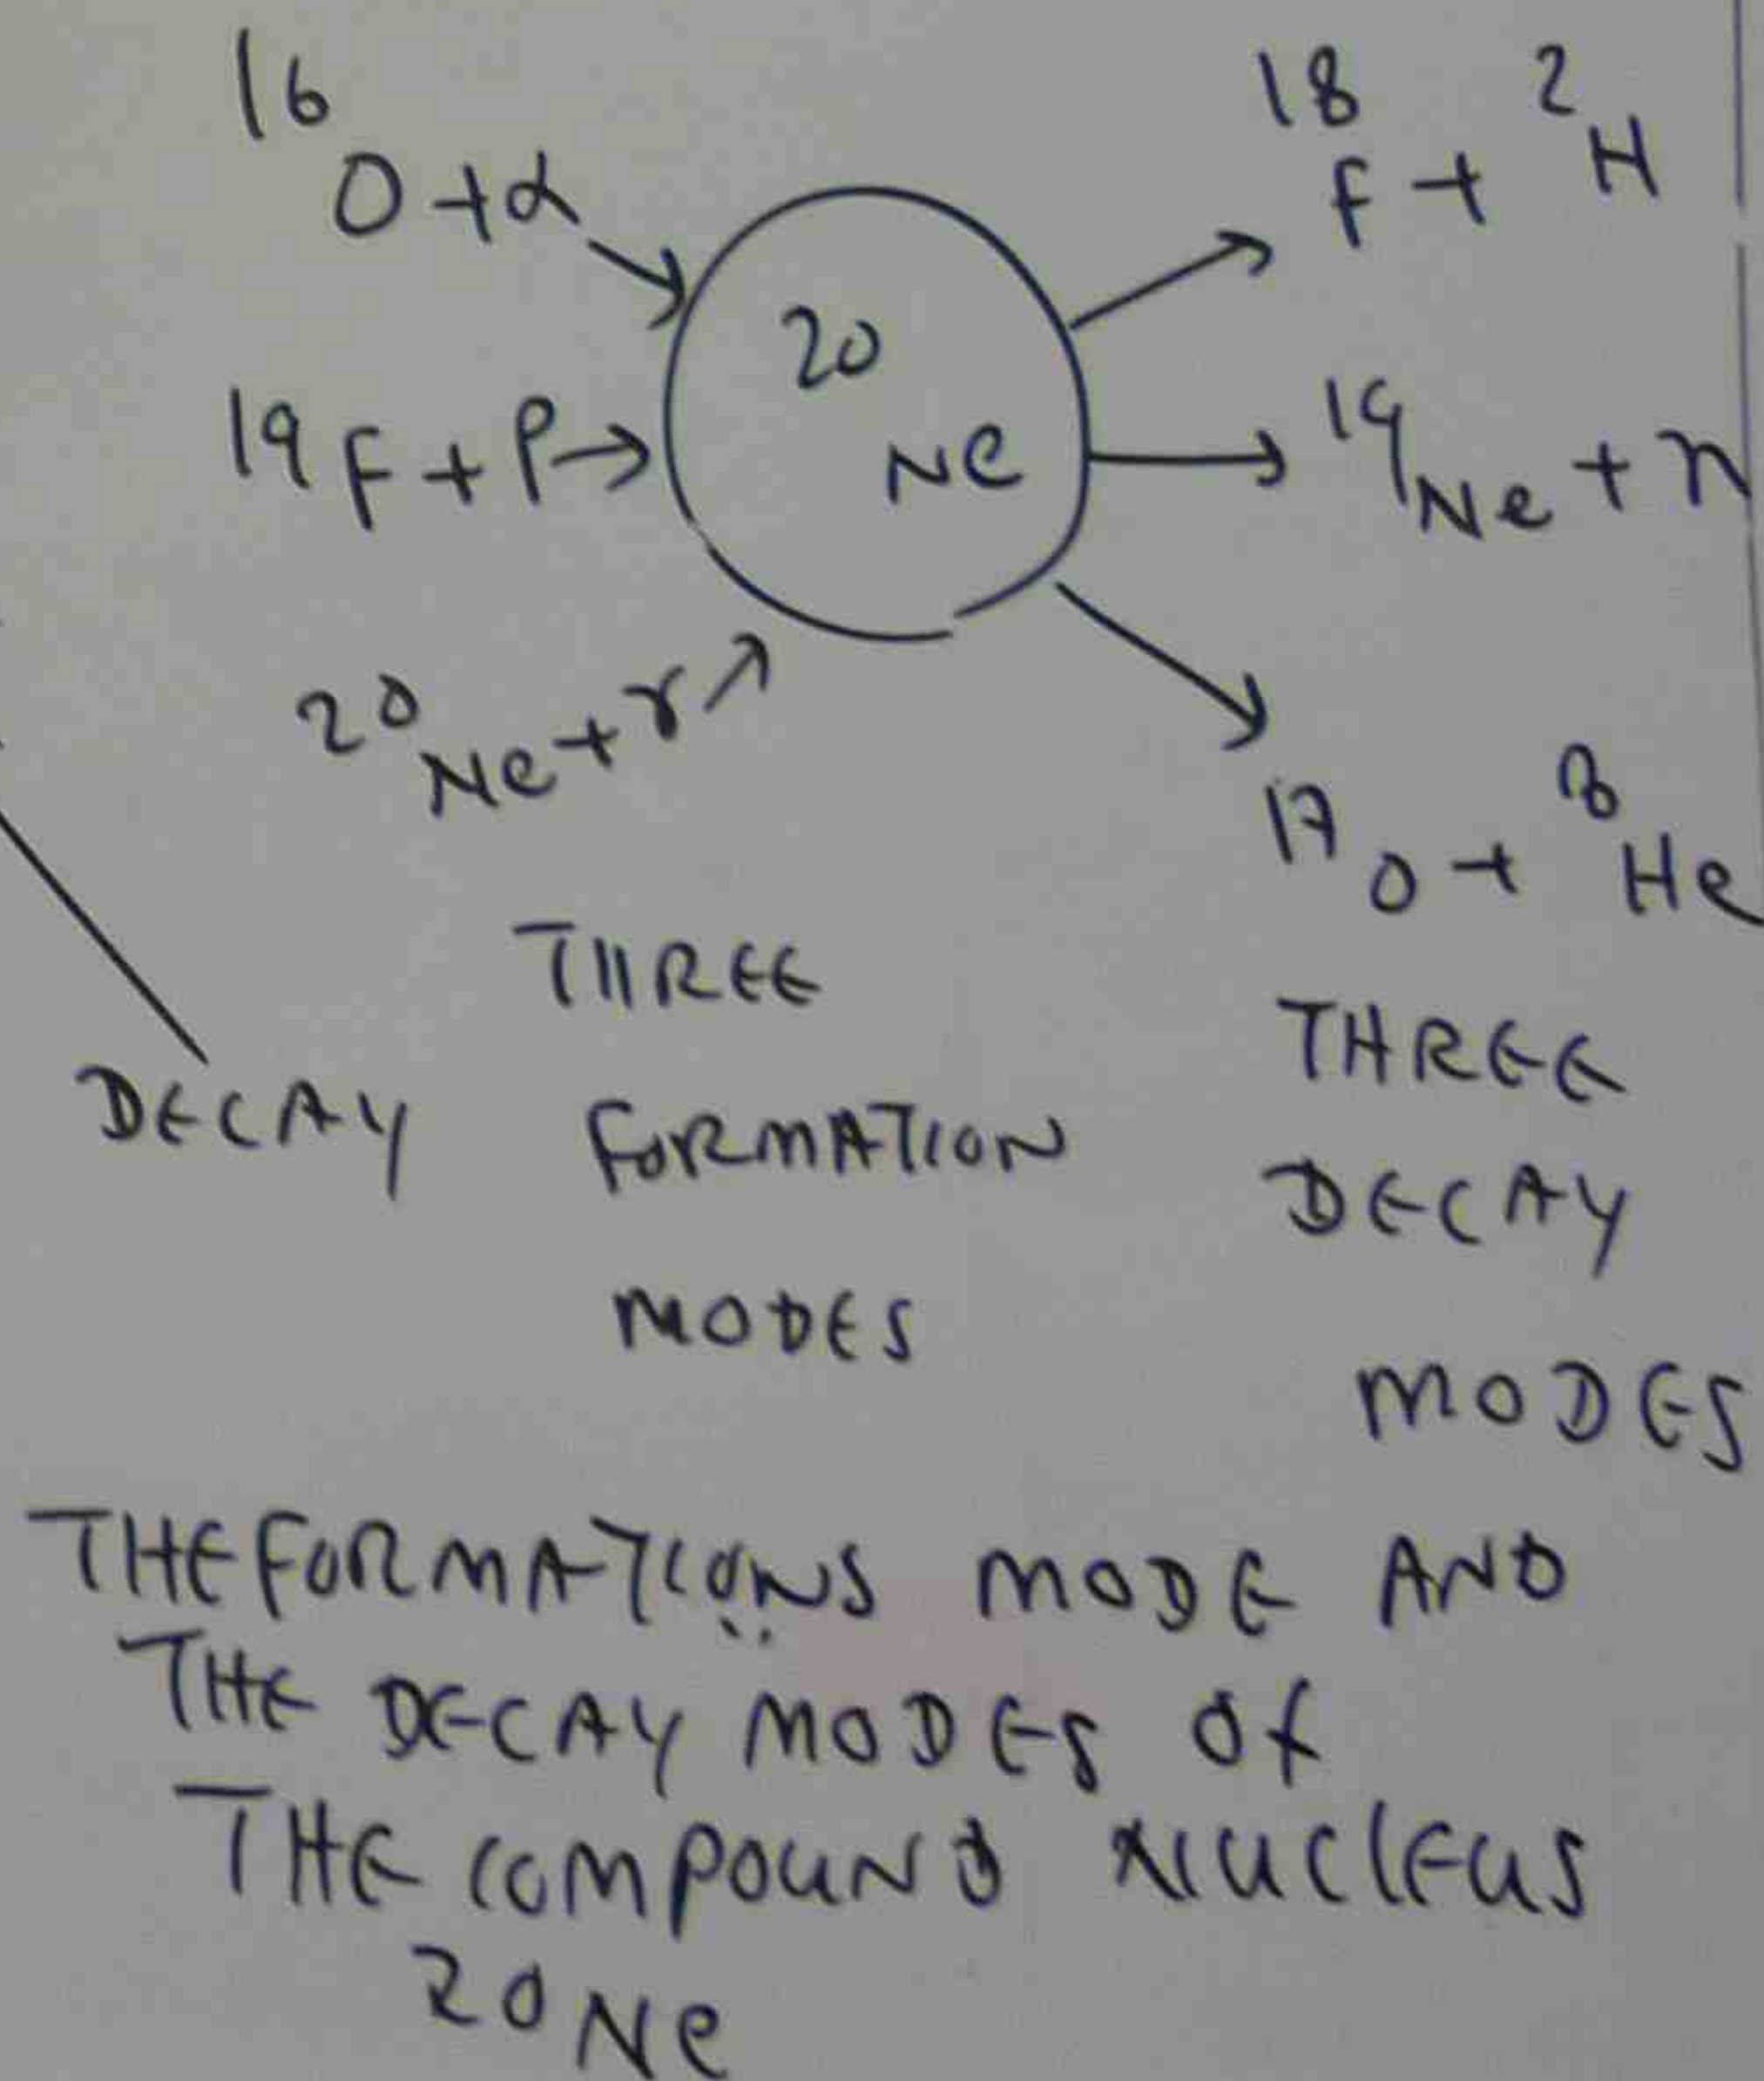 16
O + α
19 F + P
20
Ne + γ
20
Ne
18 2
F + H
19 Ne + n
17
O + He
THREE
FORMATION
MODES
DECAY
THREE
DECAY
MODES
THE FORMATIONS MODE AND
THE DECAY MODES OF
THE COMPOUND NUCLEUS
20 Ne